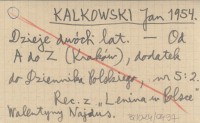 KALKOWSKI Jan 1954.
Dzieje dwóch lat. — Od
A do Z (Kraków), dodatek
do Dziennika Polskiego, nr 5: 2.
Rec. z „Lenina w Polsce"
Walentyny Najdus.